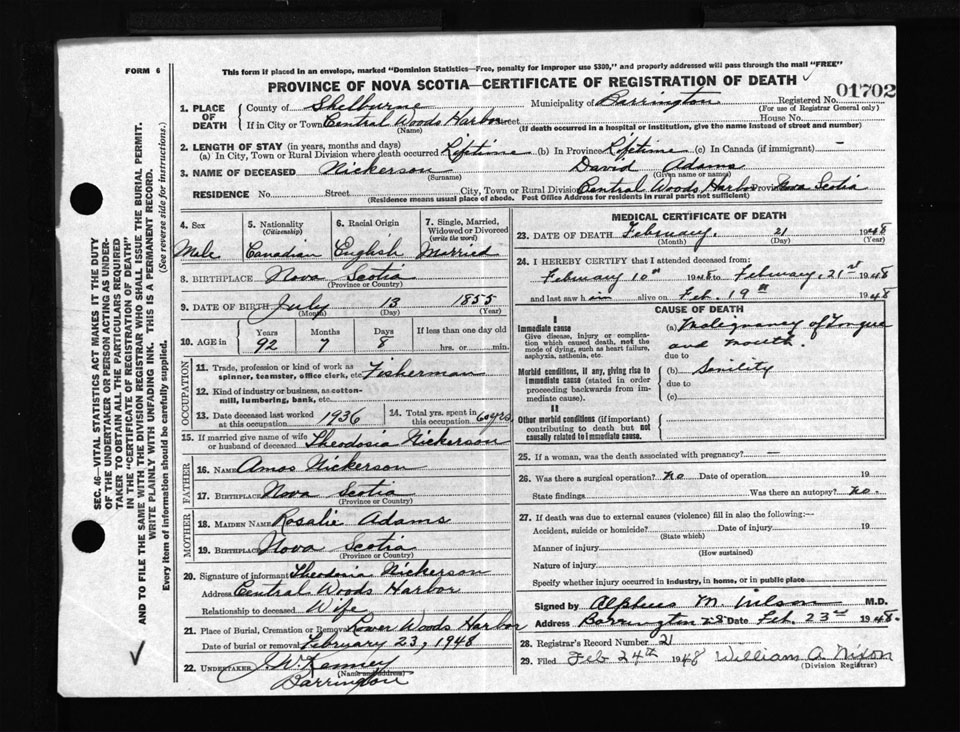 FORM 6
This form if placed in an envelope, marked "Dominion Statistics—Free, penalty for improper use $300," and properly addressed will pass through the mail "FREE"
PROVINCE OF NOVA SCOTIA—CERTIFICATE OF REGISTRATION OF DEATH
01702
SEC. 46—VITAL STATISTICS ACT MAKES IT THE DUTY
OF THE UNDERTAKER OR PERSON ACTING AS UNDER-
TAKER TO OBTAIN ALL THE PARTICULARS REQUIRED
IN THE "CERTIFICATE OF REGISTRATION OF DEATH"
AND TO FILE THE SAME WITH THE DIVISION REGISTRAR WHO SHALL ISSUE THE BURIAL PERMIT.
WRITE PLAINLY WITH UNFADING INK. THIS IS A PERMANENT RECORD.
Every item of information should be carefully supplied. (See reverse side for instructions.)
1. PLACE OF DEATH County of Shelburne Municipality of Barrington Registered No.
(For use of Registrar General only)
If in City or Town Central Woods Harbor Street House No.
(Name) (If death occurred in a hospital or institution, give the name instead of street and number)
2. LENGTH OF STAY (in years, months and days)
(a) In City, Town or Rural Division where death occurred Lifetime (b) In Province Lifetime (c) In Canada (if immigrant) —
3. NAME OF DECEASED Nickerson David Adams
(Surname) (Given name or names)
RESIDENCE No. Street City, Town or Rural Division Central Woods Harbor Province Nova Scotia
(Residence means usual place of abode. Post Office Address for residents in rural parts not sufficient)
4. Sex 5. Nationality (Citizenship) 6. Racial Origin 7. Single, Married, Widowed or Divorced (write the word)
Male Canadian English Married
8. BIRTHPLACE Nova Scotia
(Province or Country)
9. DATE OF BIRTH July 13 1855
(Month) (Day) (Year)
10. AGE in Years Months Days If less than one day old
92 7 8 hrs. or min.
OCCUPATION
11. Trade, profession or kind of work as spinner, teamster, office clerk, etc. Fisherman
12. Kind of industry or business, as cotton-mill, lumbering, bank, etc.
13. Date deceased last worked at this occupation 1936 14. Total yrs. spent in this occupation 60 yrs.
15. If married give name of wife or husband of deceased Theodosia Nickerson
FATHER
16. NAME Amos Nickerson
17. BIRTHPLACE Nova Scotia
(Province or Country)
MOTHER
18. MAIDEN NAME Rosalie Adams
19. BIRTHPLACE Nova Scotia
(Province or Country)
20. Signature of informant Theodosia Nickerson
Address Central Woods Harbor
Relationship to deceased Wife
21. Place of Burial, Cremation or Removal Lower Woods Harbor
Date of burial or removal February 23, 1948
22. UNDERTAKER J. W. Kenney
(Name and address)
Barrington
MEDICAL CERTIFICATE OF DEATH
23. DATE OF DEATH February. 21 1948
(Month) (Day) (Year)
24. I HEREBY CERTIFY that I attended deceased from:
February 10th 1948 to February, 21st 1948
and last saw him alive on Feb. 19th 1948
CAUSE OF DEATH
I
Immediate cause
Give disease, injury or complication which caused death, not the mode of dying, such as heart failure, asphyxia, asthenia, etc.
(a) Malignancy of Tongue
and mouth.
due to
Morbid conditions, if any, giving rise to immediate cause (stated in order proceeding backwards from immediate cause).
(b) Sinility
due to
(c)
II
Other morbid conditions (if important) contributing to death but not causally related to immediate cause.
25. If a woman, was the death associated with pregnancy? —
26. Was there a surgical operation? No Date of operation 19
State findings Was there an autopsy? No.
27. If death was due to external causes (violence) fill in also the following:—
Accident, suicide or homicide? Date of injury 19
(State which)
Manner of injury
(How sustained)
Nature of injury
Specify whether injury occurred in industry, in home, or in public place
Signed by Alpheus M. Wilson M.D.
Address Barrington N.S. Date Feb. 23rd 1948.
28. Registrar's Record Number 21
29. Filed Feb 24th 1948 William A. Nixon
(Division Registrar)